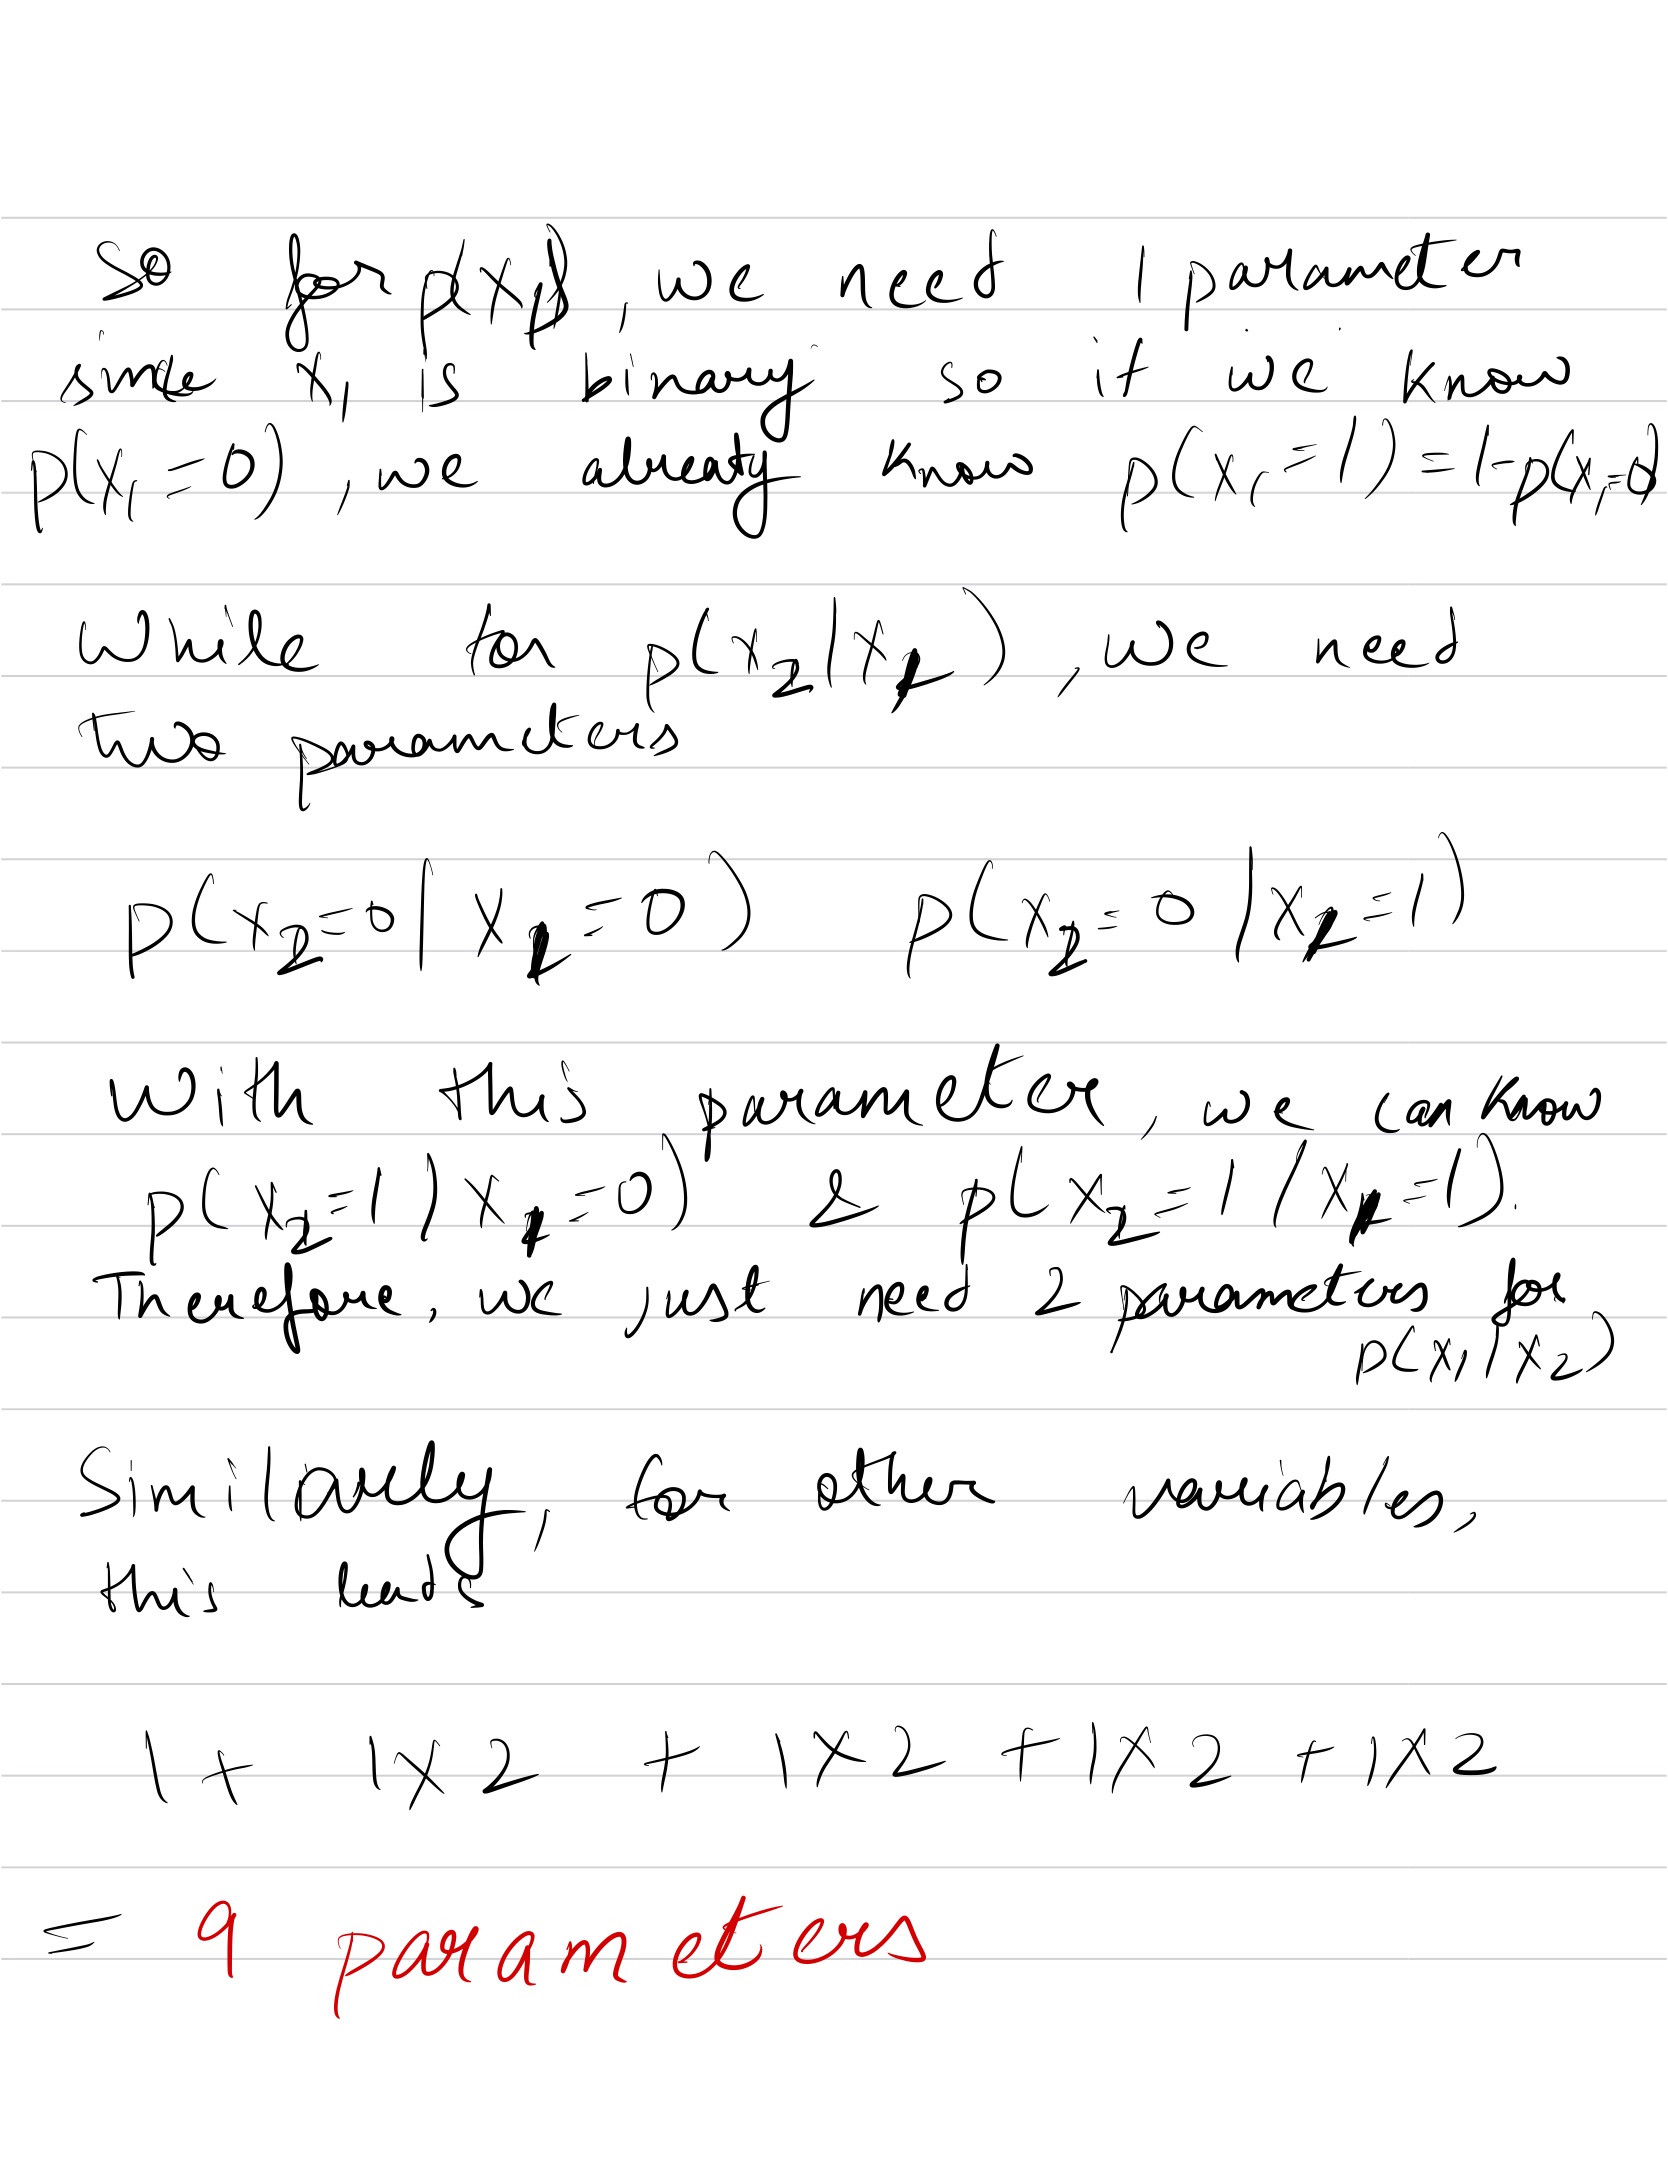 So for p(x₁), we need 1 parameter
since x₁ is binary so if we know
p(x₁=0), we already know p(x₁=1)=1-p(x₁=0)
While for p(x₂|x₁), we need
two parameters
p(x₂=0|x₁=0) p(x₂=0|x₁=1)
With this parameter, we can know
p(x₂=1|x₁=0) & p(x₂=1|x₁=1).
Therefore, we just need 2 parameters for
p(x₁|x₂)
Similarly, for other variables,
this leads
1 + 1x2 + 1x2 + 1x2 + 1x2
= 9 parameters